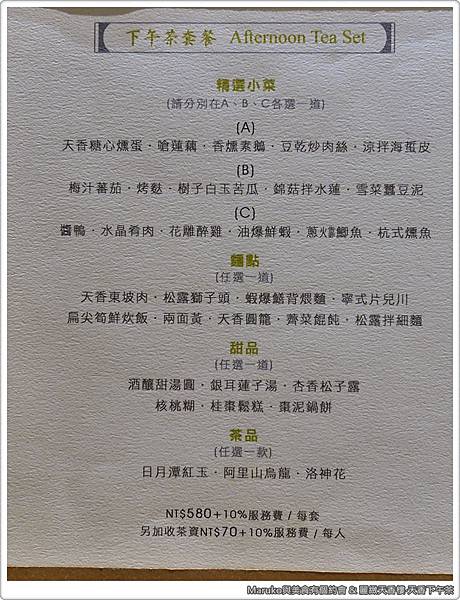 下午茶套餐 Afternoon Tea Set
精選小菜
(請分別在A、B、C各選一道)
(A)
天香糖心燻蛋・嗆蓮藕・香燻素鵝・豆乾炒肉絲・涼拌海蜇皮
(B)
梅汁蕃茄・烤麩・樹子白玉苦瓜・錦菇拌水蓮・雪菜蠶豆泥
(C)
醬鴨・水晶肴肉・花雕醉雞・油爆鮮蝦・蔥㸆鯽魚・杭式燻魚
麵點
(任選一道)
天香東坡肉・松露獅子頭・蝦爆鱔背煨麵・寧式片兒川
扁尖筍鮮炊飯・兩面黃・天香圓籠・薺菜餛飩・松露拌細麵
甜品
(任選一道)
酒釀甜湯圓・銀耳蓮子湯・杏香松子露
核桃糊・桂棗鬆糕・棗泥鍋餅
茶品
(任選一款)
日月潭紅玉・阿里山烏龍・洛神花
NT$580+10%服務費 / 每套
另加收茶資NT$70+10%服務費 / 每人
Maruko與美食有個約會 & 麗緻天香樓-天香下午茶